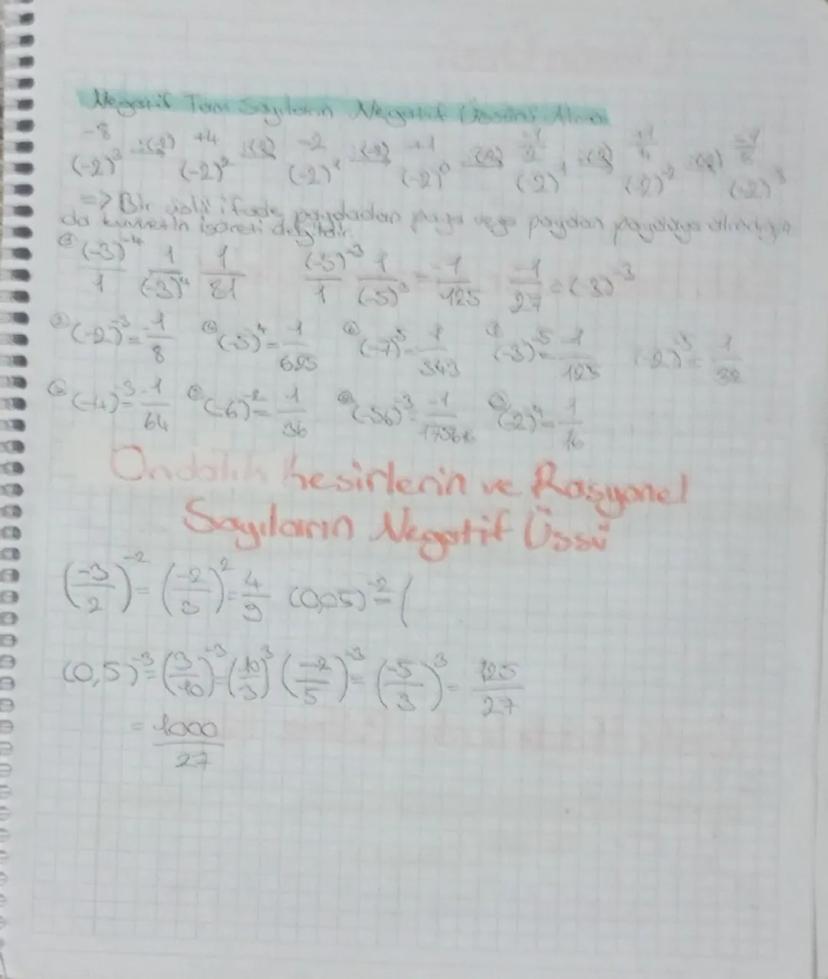 Negatif Tam Sayıların Negatif Üssünü Alma
-8 :(-2) +4 :(-2) -2 :(-2) +1 :(-2) -1/2 :(-2) +1/4 :(-2) -1/8
(-2)³ (-2)² (-2)¹ (-2)⁰ (-2)¹ (-2)⁻² (-2)³
=> Bir üslü ifade paydadan paya veya paydan paydaya
da kuvvetin işareti değişir.
(-3)⁻⁴/1 1/(-3)⁴ 1/81 (-5)⁻³/1 1/(-5)³ = -1/125 -1/27 = (-3)⁻³
(-2)⁻³ = -1/8 (-5)⁴ = 1/625 (-7)³ = 1/343 (-3)⁻⁵ = -1/125 (-2)⁻⁵ = 1/32
(-4)⁻³ = -1/64 (-6)⁻² = -1/36 (-56)⁻³ = -1 (-2)⁴ = 1/16
Ondalık Kesirlerin ve Rasyonel
Sayıların Negatif Üssü
(-3/2)⁻² = (-2/3)² = 4/9 (0,05)⁻² = (
(0,5)⁻³ = (3/10)⁻³ = (10/3)³ (-2/5)⁻³ = (-5/3)³ = 125/27
= 1000/27